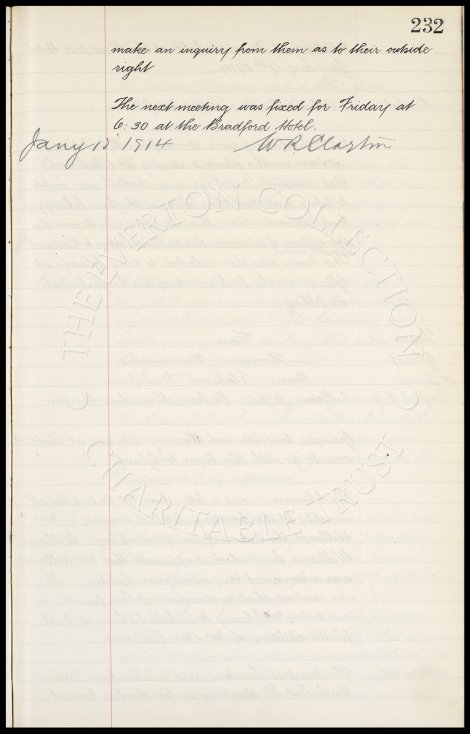 232
make an inquiry from them as to their outside
right
The next meeting was fixed for Friday at
6:30 at the Bradford Hotel.
Jany 1914
W R Clayton
THE EVERTON COLLECTION
CHARITABLE TRUST